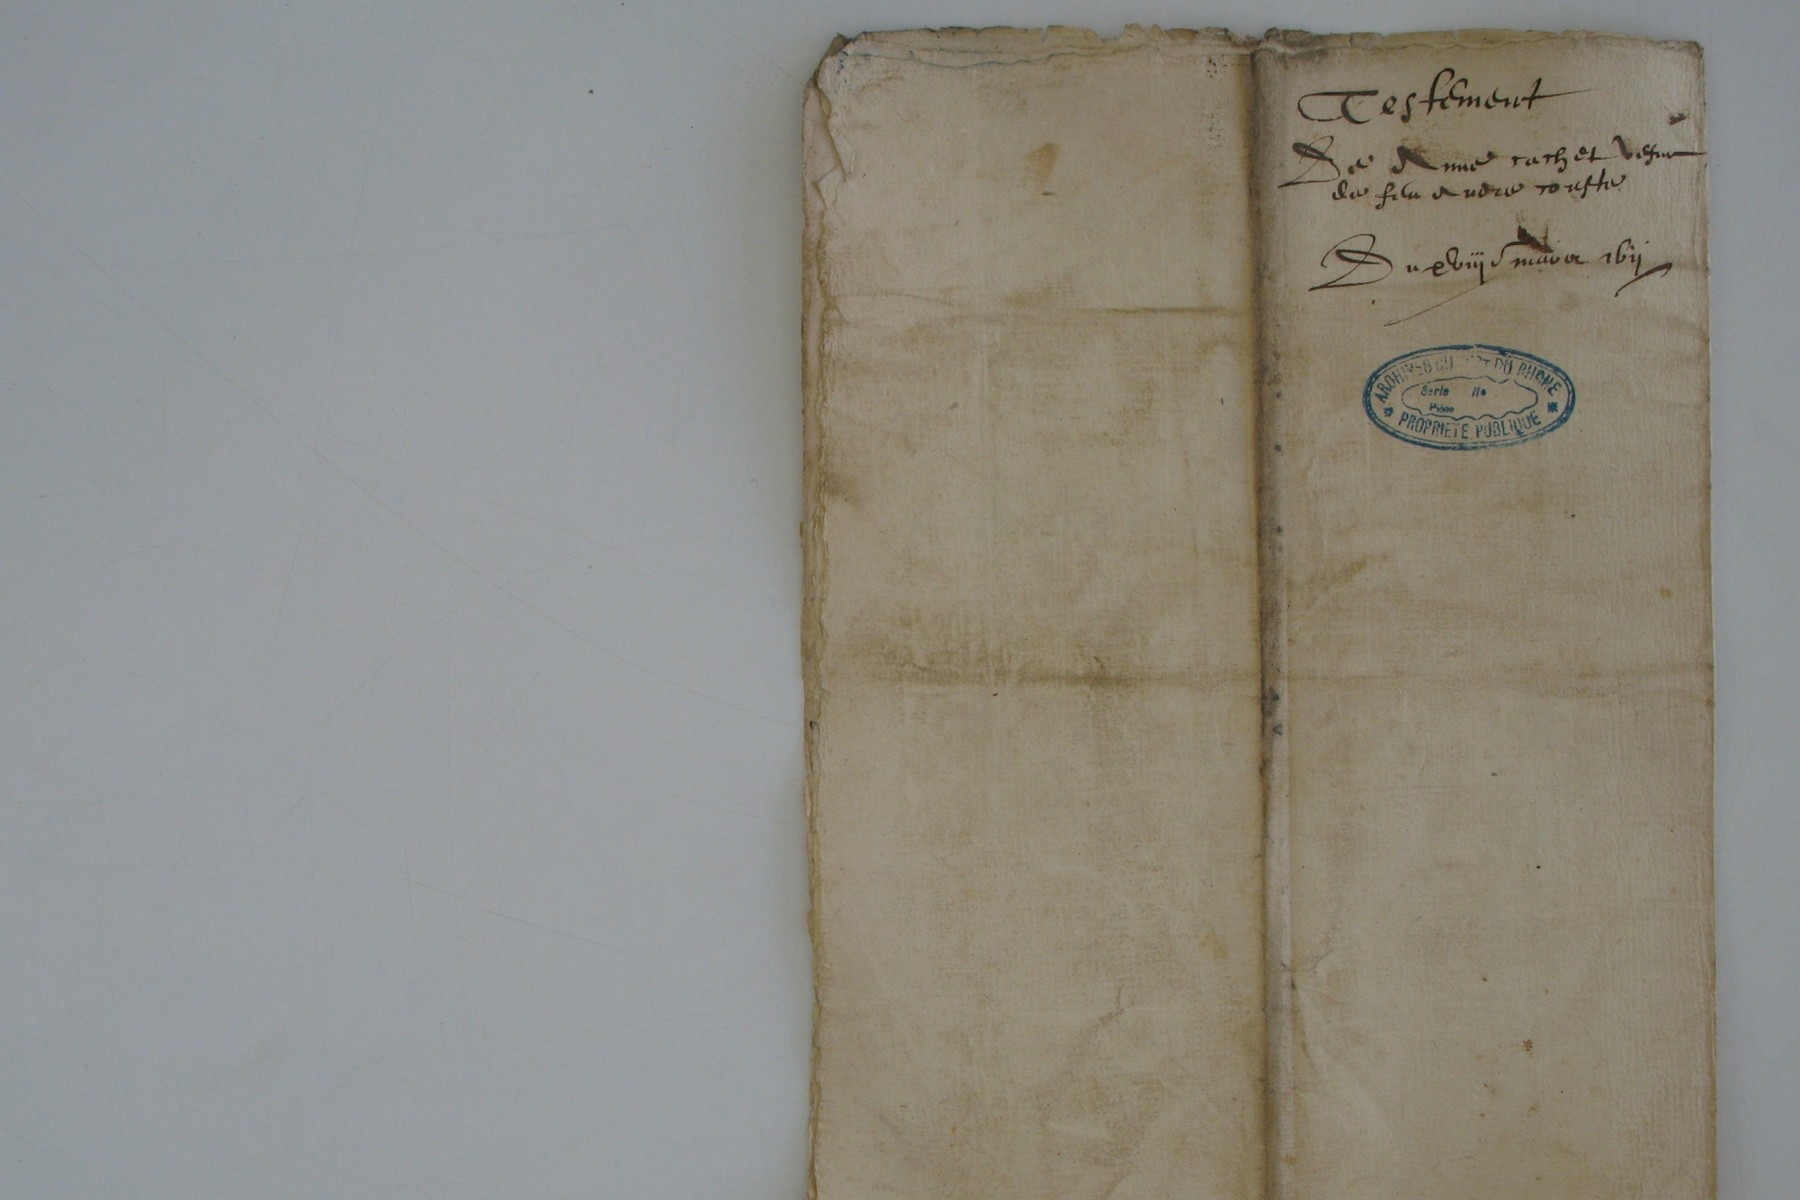 Testement
De Anne cachet vefue
de feu Andre conste
Du xviij mars 16ij
ARCHIVES DU DU RHONE
Serie No
Pièce
PROPRIETE PUBLIQUE